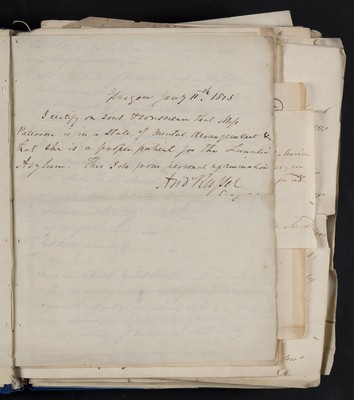 Glasgow Jany 11th 1815
I certify on soul & conscience that Miss
Paterson is in a state of mental derangement &
that she is a proper patient for the Lunatic
Asylum. This I do from personal examination
And Russel